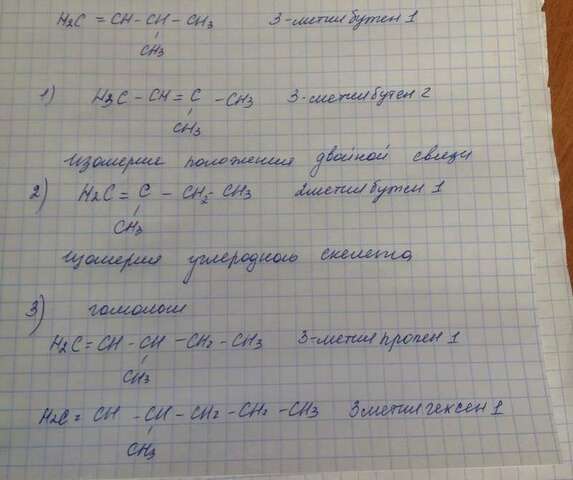 H2C = CH - CH - CH3 3-метилбутен 1
CH3
1) H3C - CH = C - CH3 3-метилбутен 2
CH3
изомерия положения двойной связи
2) H2C = C - CH2 - CH3 2метилбутен 1
CH3
изомерия углеродного скелета
3) гомологи
H2C = CH - CH - CH2 - CH3 3-метилпропен 1
CH3
H2C = CH - CH - CH2 - CH2 - CH3 3метилгексен 1
CH3